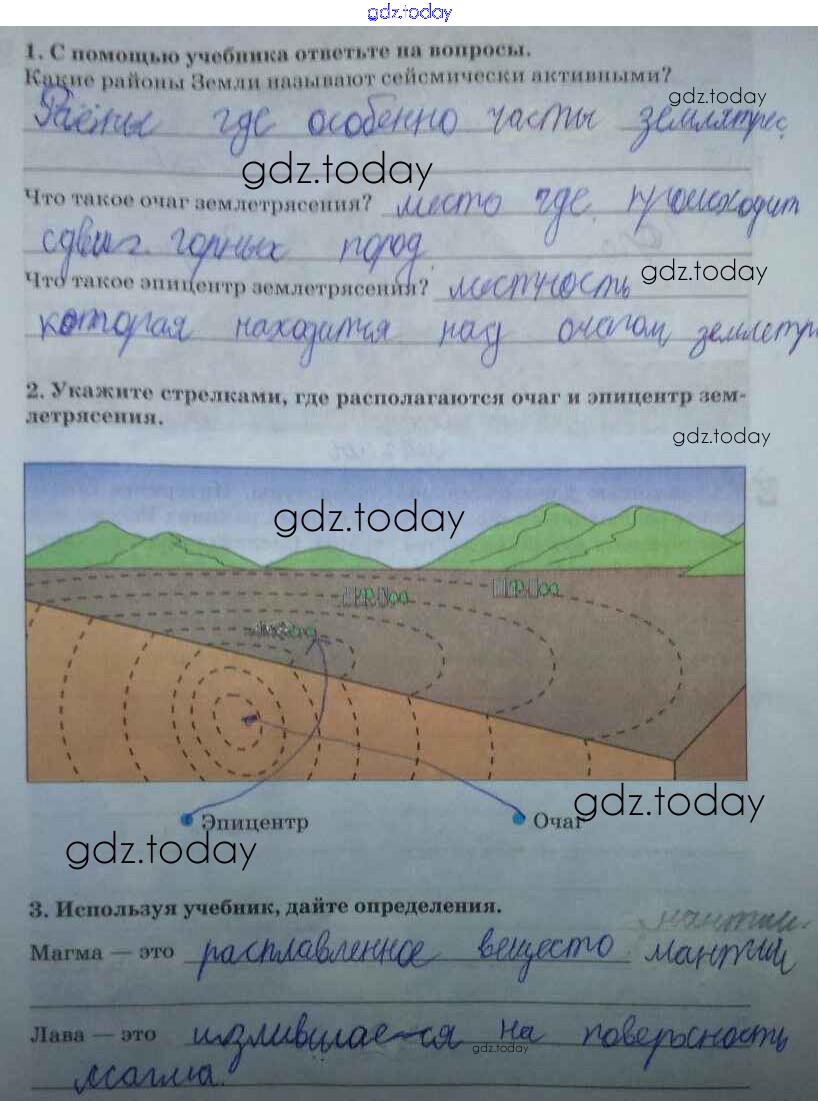 gdz.today
1. С помощью учебника ответьте на вопросы.
Какие районы Земли называют сейсмически активными?
gdz.today
где особенно часты землятрес
gdz.today
Что такое очаг землетрясения? место где происходит
сдвиг горных пород.
gdz.today
Что такое эпицентр землетрясения? местность
которая находится над очагом землетр
2. Укажите стрелками, где располагаются очаг и эпицентр зем-
летрясения.
gdz.today
gdz.today
gdz.today
Эпицентр Очаг
gdz.today
3. Используя учебник, дайте определения.
мантии.
Магма — это расплавленное вещесто мантии
Лава — это излившиаеся на поверсность
gdz.today
магма.